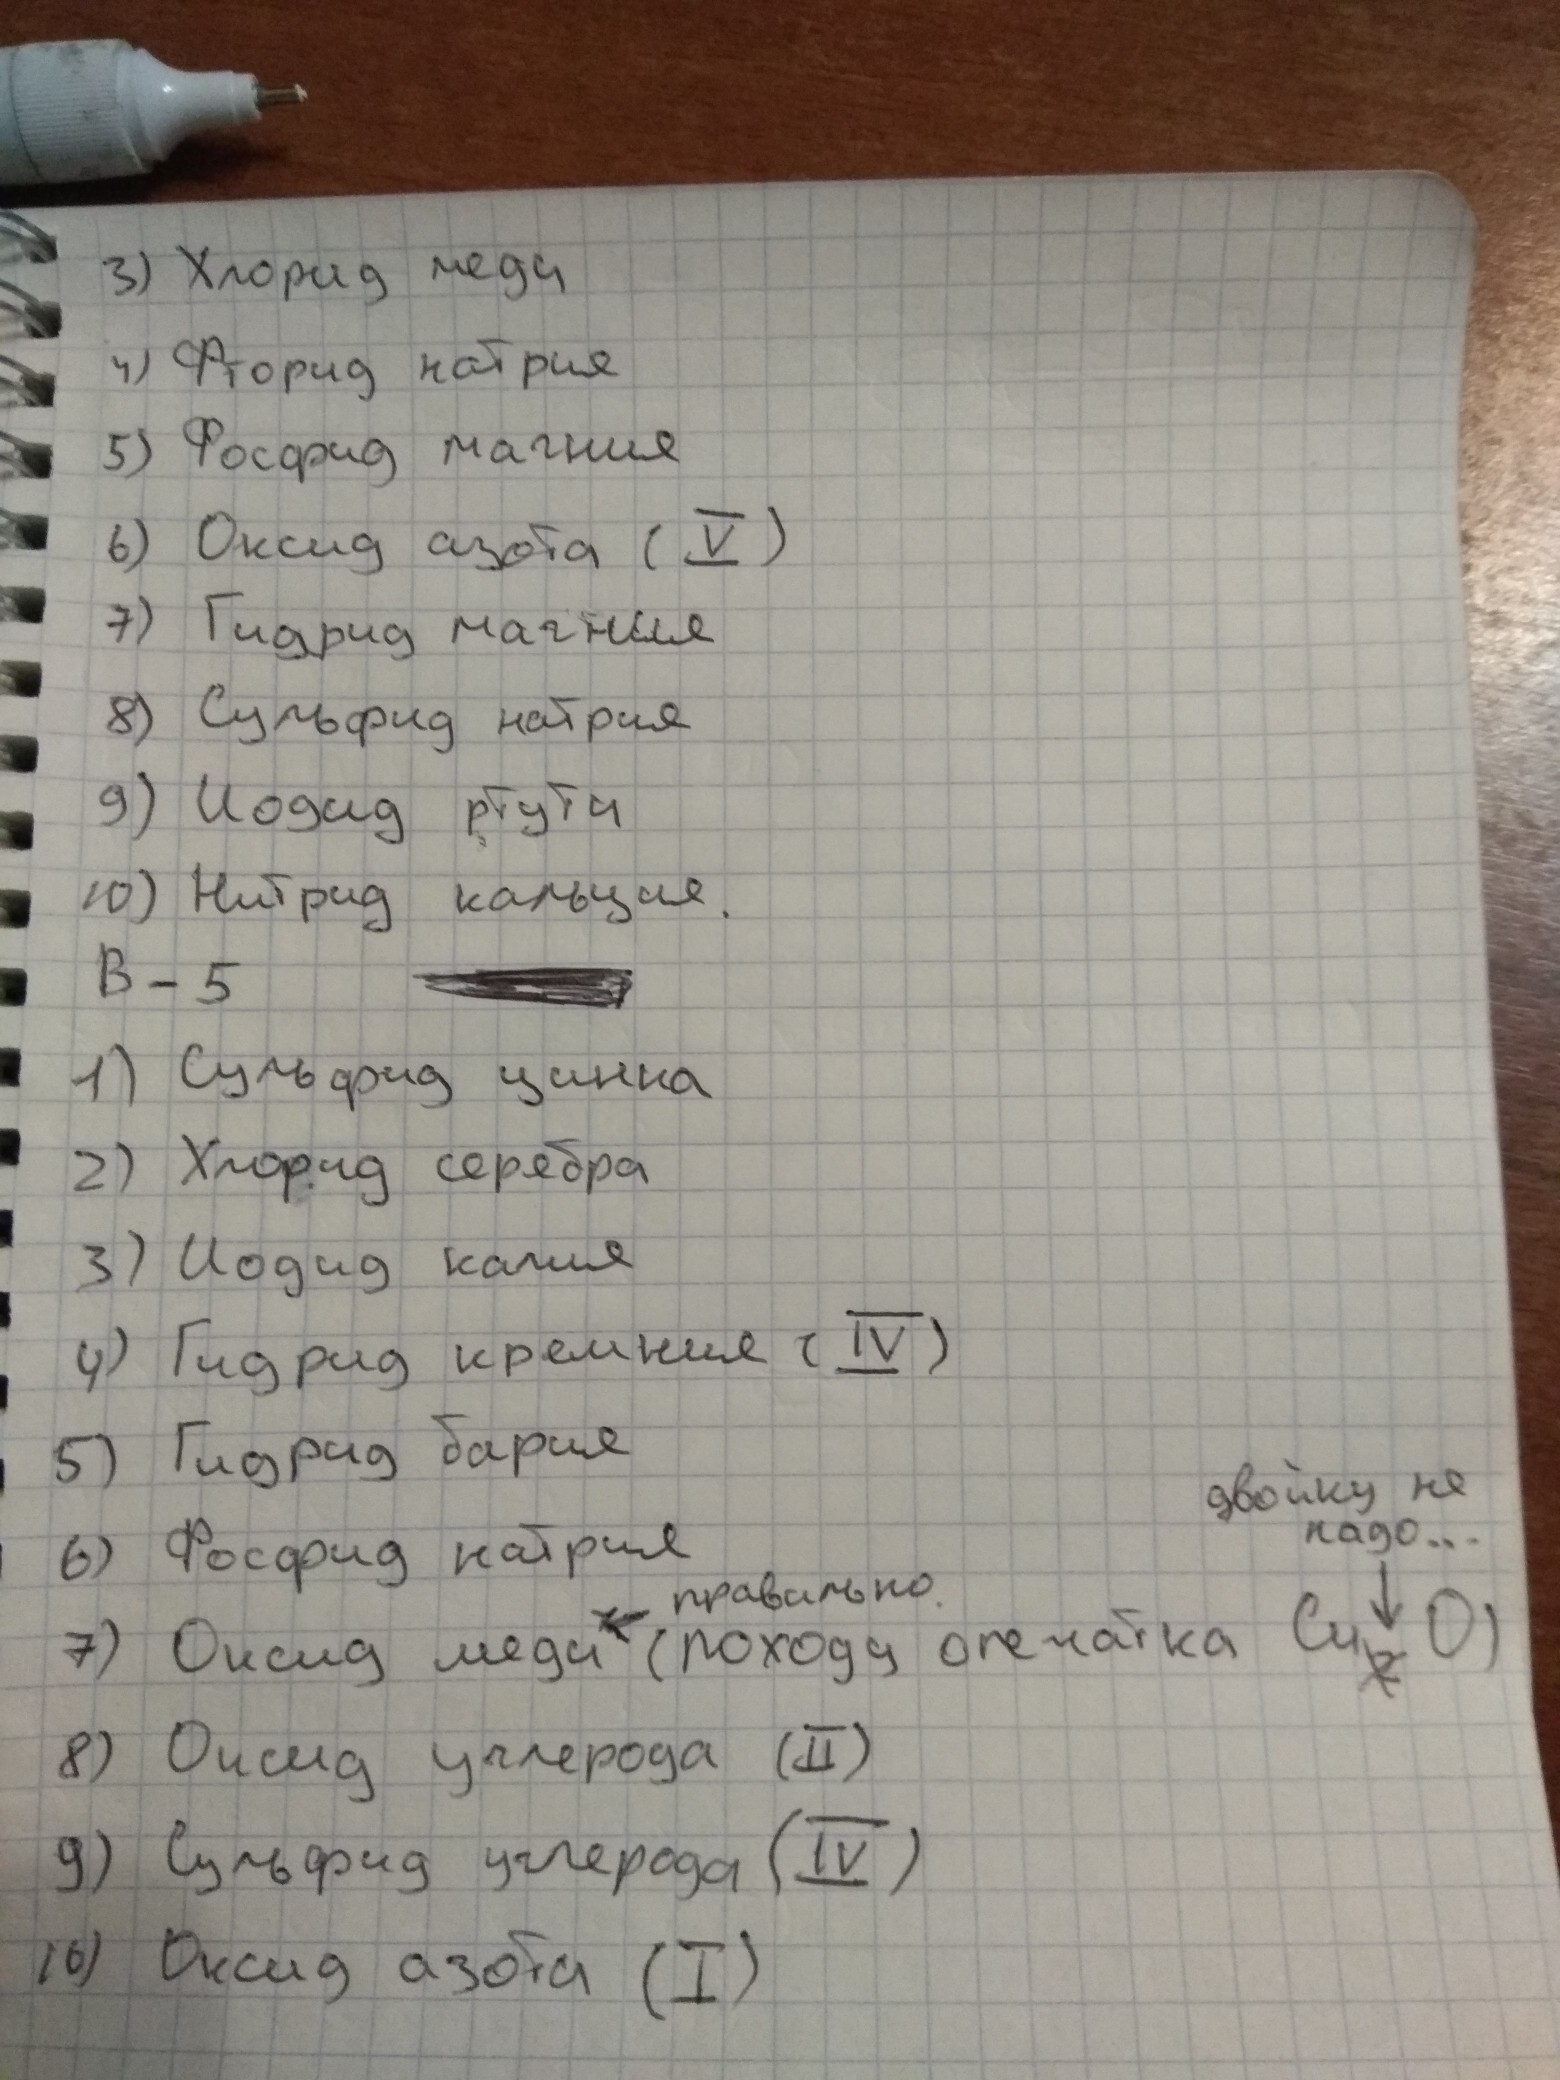 3) Хлорид меди
4) Фторид натрия
5) Фосфид магния
6) Оксид азота (V)
7) Гидрид магния
8) Сульфид натрия
9) Иодид ртути
10) Нитрид кальция.
В - 5
1) Сульфид цинка
2) Хлорид серебра
3) Иодид калия
4) Гидрид кремния (IV)
5) Гидрид бария
двойку не
надо...
6) Фосфид натрия
правильно.
7) Оксид меди (походу опечатка Cu2O)
8) Оксид углерода (II)
9) Сульфид углерода (IV)
10) Оксид азота (I)